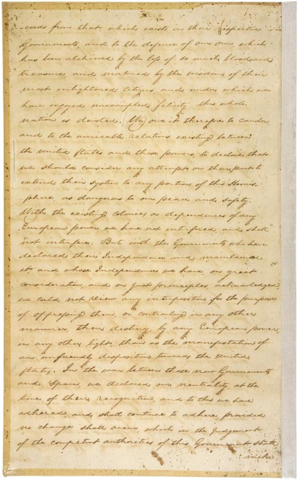 ceeds from that, which exists in their respective
Governments, and to the defence of our own, which
has been atchieved by the loss of so much blood and
treasure, and matured by the wisdom of their
most enlightened citizens, and under which we
have enjoyed unexampled felicity, this whole
nation is devoted. We owe it therefore to candor
and to the amicable relations existing between
the United States and those powers, to declare that
we should consider any attempt on their part to
extend their system to any portion of this Hemis-
phere, as dangerous to our peace and safety.
With the existing Colonies or dependencies of any
European power, we have not interfered, and shall
not interfere. But with the Governments who have
declared their Independence, and maintained
it, and whose Independence we have, on great
consideration, and on just principles, acknowledged,
we could not view any interposition for the purpose
of oppressing them, or controuling in any other
manner, their destiny, by any European power,
in any other light, than as the manifestation of
an unfriendly disposition towards the United
States. In the war between those new Governments
and Spain, we declared our neutrality, at the
time of their recognition, and to this we have
adhered, and shall continue to adhere, provided
no change shall occur, which in the Judgement
of the competent authorities of this Government, shall
make